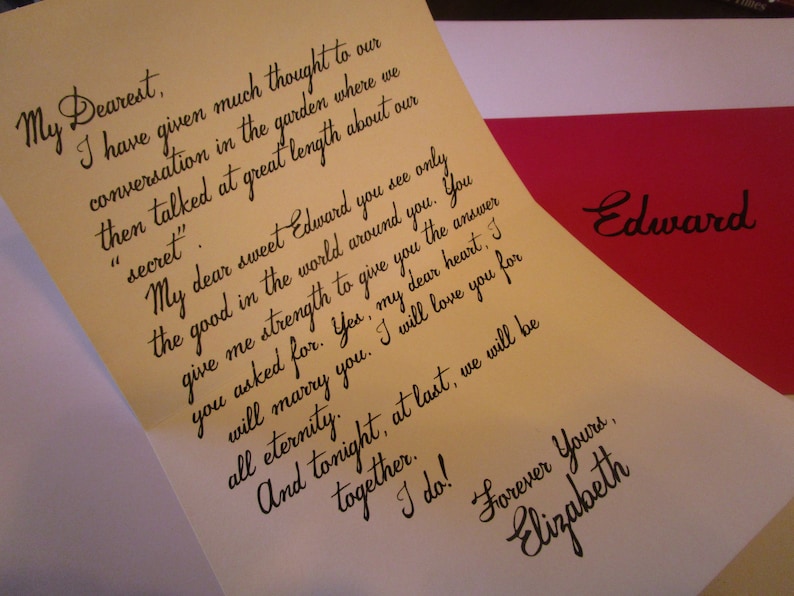 My Dearest,
I have given much thought to our
conversation in the garden where we
then talked at great length about our
"secret".
My dear sweet Edward you see only
the good in the world around you. You
give me strength to give you the answer
you asked for. Yes, my dear heart, I
will marry you. I will love you for
all eternity.
And tonight, at last, we will be
together.
I do!
Forever Yours,
Elizabeth
Edward
Times